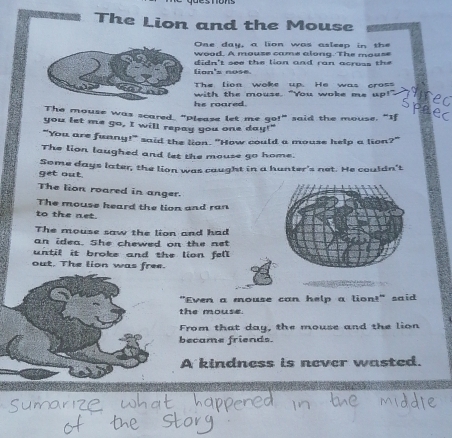 The Lion and the Mouse
One day, a lion was asleep in the
wood. A mouse came along. The mouse
didn't see the lion and ran across the
lion's nose.
The lion woke up. He was cross
with the mouse. "You woke me up!"
he roared.
The mouse was scared. "Please let me go!" said the mouse. "If
you let me go, I will repay you one day!"
"You are funny!" said the lion. "How could a mouse help a lion?"
The lion laughed and let the mouse go home.
Some days later, the lion was caught in a hunter's net. He couldn't
get out.
The lion roared in anger.
The mouse heard the lion and ran
to the net.
The mouse saw the lion and had
an idea. She chewed on the net
until it broke and the lion fell
out. The lion was free.
"Even a mouse can help a lion!" said
the mouse.
From that day, the mouse and the lion
became friends.
A kindness is never wasted.
sumarize what happened in the middle
of the story